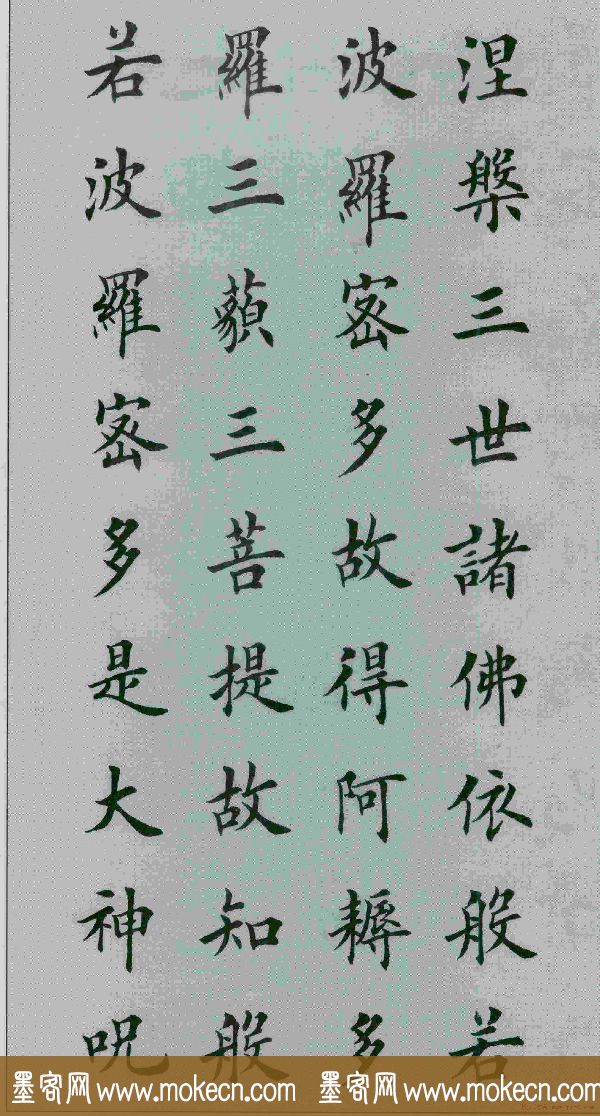 涅槃三世諸佛依般若
波羅密多故得阿耨多
羅三藐三菩提故知般
若波羅密多是大神呪
墨客网 www.mokecn.com 墨客网 www.mokecn.com